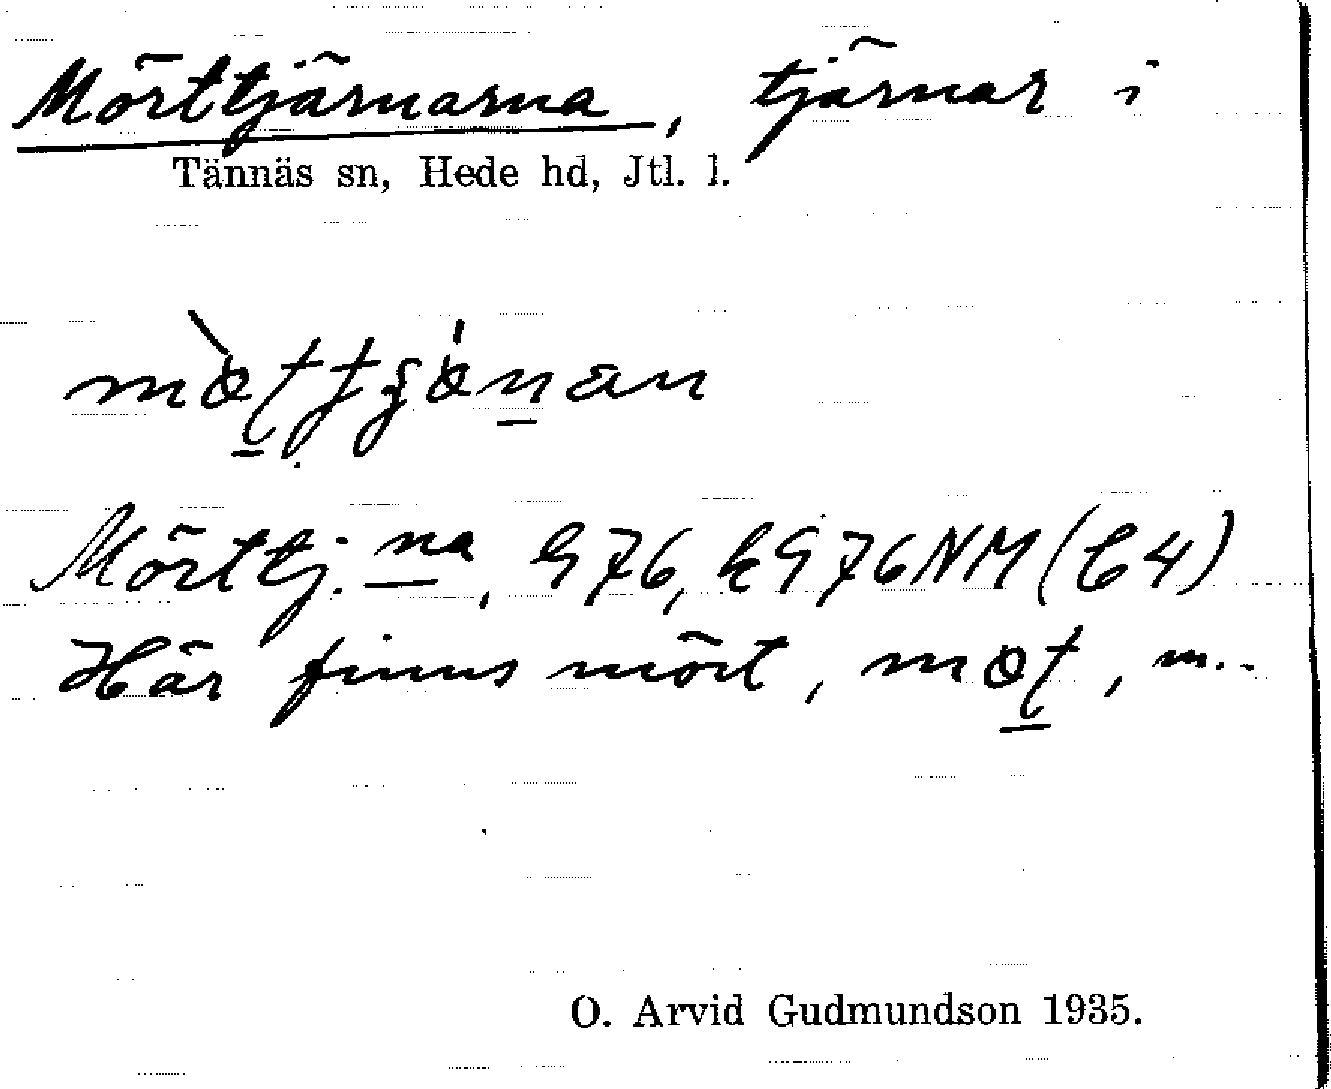 Mörttjärnarna, tjärnar i
Tännäs sn, Hede hd, Jtl. l.
Mörttj. na, G76, kG76NM (C4)
Här finns mört, m..
O. Arvid Gudmundson 1935.